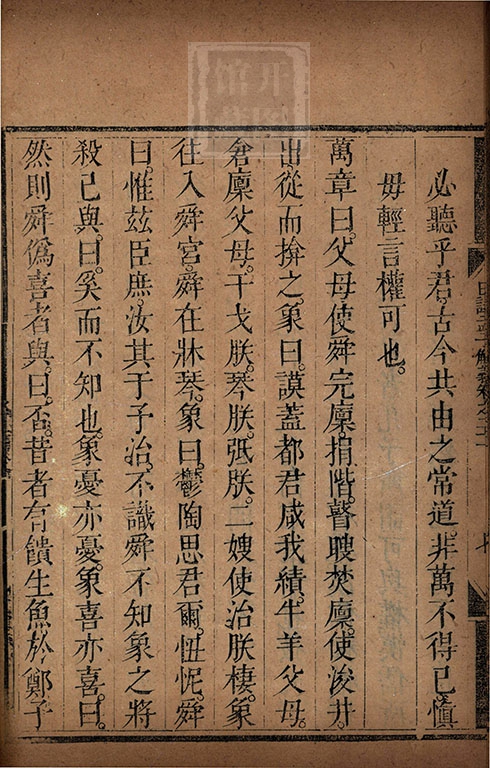 必聽乎君古今共由之常道。非萬不得已。愼
毋輕言權可也。
萬章曰。父母使舜完廩。捐階。瞽瞍焚廩。使浚井。
出從而揜之。象曰。謨蓋都君咸我績。牛羊父母。
倉廩父母。干戈朕。琴朕。弤朕。二嫂使治朕棲。象
往入舜宮。舜在牀琴。象曰。鬱陶思君爾。忸怩。舜
曰。惟茲臣庶。汝其于予治。不識舜不知象之將
殺己與。曰。奚而不知也。象憂亦憂。象喜亦喜。曰。
然則舜僞喜者與。曰。否。昔者有饋生魚於鄭子